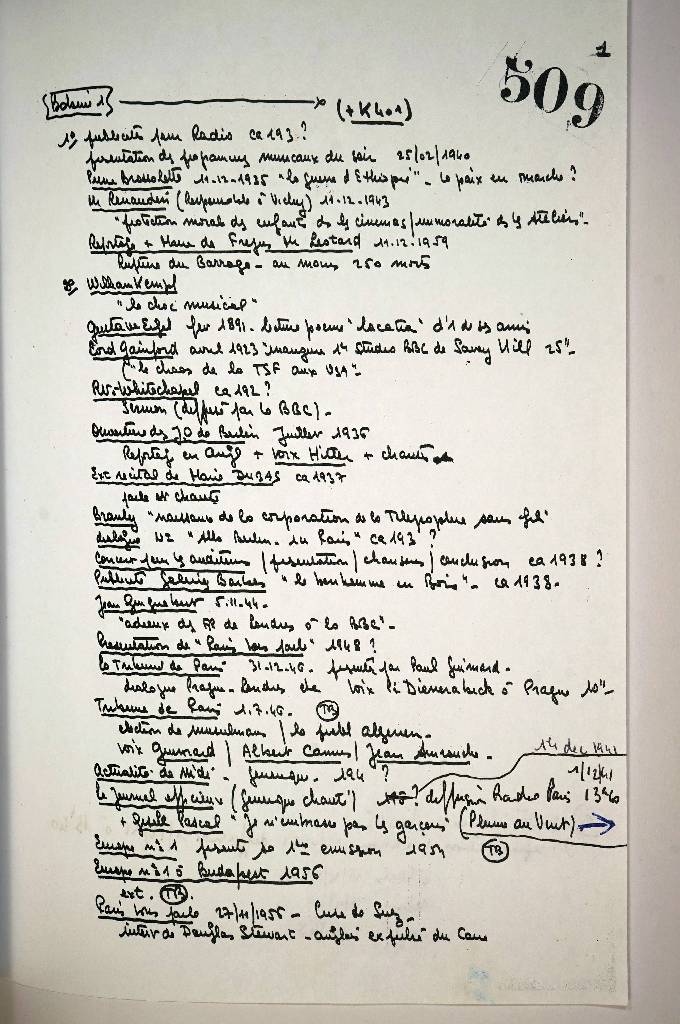 1
509
Bobini 1 (+K401)
1° publicités pour Radio ca 193?
présentation des programmes musicaux du soir 25/02/1940
Pierre Brossolette 11-12-1935 "la guerre d'Ethiopie" - la paix en marche ?
Mr Renaudin (Responsable à Vichy) 11-12-1943
"protection morale des enfants ds les cinémas/immoralité ds les Ateliers"-
Reportage + Maire de Frejus Mr Leotard 11-12-1959
Rupture du Barrage - au moins 250 morts
2° William Kempf
"le choc musical"
Gustave Eiffel fev 1891. lecture poeme "location" d'1 de ses amis
Lord Gainford avril 1923 "inaugure 1er Studio BBC de Savoy Hill 25"-
("le chaos de la TSF aux USA"-
RV. Whitechapel ca 192?
Sermon (diffusé par la BBC)-
Ouverture des JO de Berlin Juillet 1936
Reportage en Angl + voix Hitler + chants
Ext recital de Marie DUBAS ca 1937
parle et chante
Branly "naissance de la corporation de la Telegraphie sans fil"
dialogue N2 "Allo Berlin. Ici Paris" ca 193 ?
Concert pour les auditeurs / présentation / chansons / conclusion ca 1938 ?
Publicité Galeries Barbes "le bonhomme en Bois"- ca 1938.
Jean Guignebert 5.11.44-
"adieux des FF de Londres à la BBC"-
Présentation de "Paris vous parle" 1948 ?
La Tribune de Paris 31.12.46. présenté par Paul Guimard-
dialogue Prague-Londres etc voix à Prague 10"-
Tribune de Paris 1.7.46. TB
election de musulmans / le problè algerien.
voix Guimard / Albert Camus / Jean -
14 dec 1941
Actualité de Midi - generique. 194 ?
1/12/41
le Journal (generique chanté) ? diffusion Radio Paris 13h40
+ Gisèle Pascal "Je n'embrasse pas les garçons" (Plume au Vent) →
Europe n°1 présente sa 1ère emission 1954 TB
Europe n°1 à Budapest 1956
ext. TB
Paris vous parle 27/11/1956 - Crise de Suez-
interv de Douglas Stewart - anglais expulsé du Caire